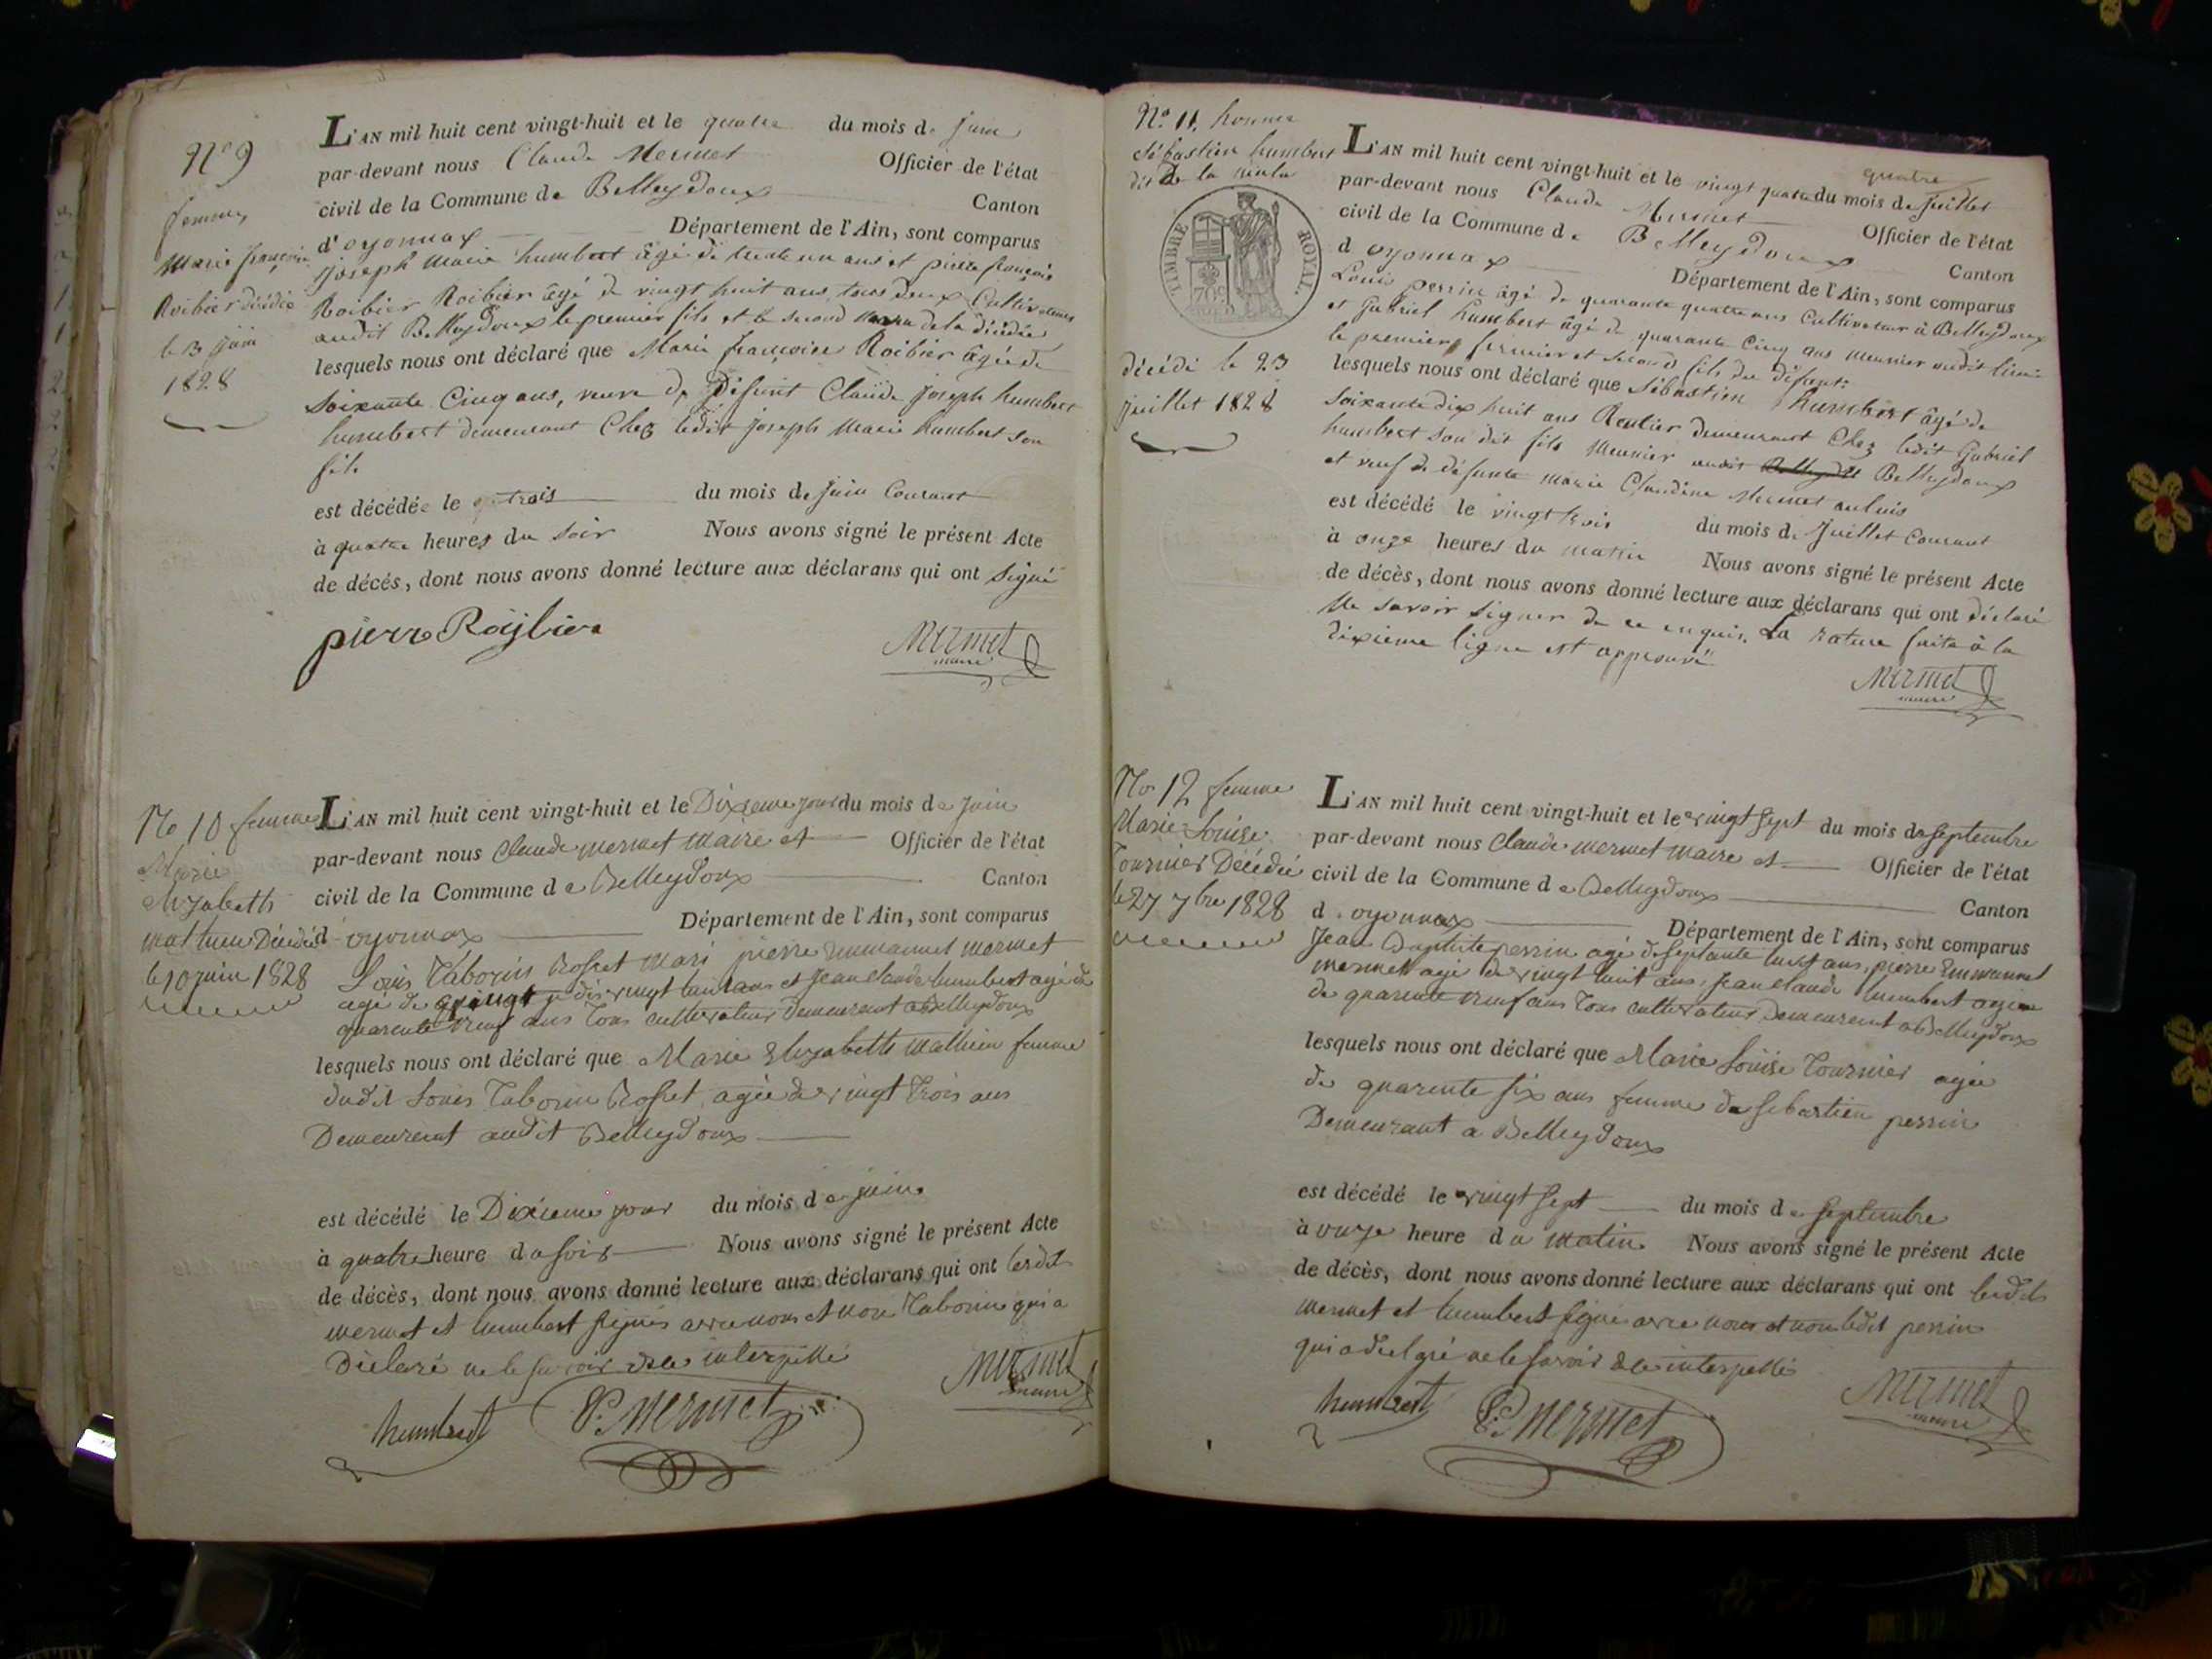 N° 9
femme,
Marie françoise
Roibier décédée
le 3 juin
1828
L'AN mil huit cent vingt-huit et le quatre du mois de juin
par-devant nous Claude Mermet Officier de l'état
civil de la Commune de Belleydoux Canton
d'oyonnax Département de l'Ain, sont comparus
joseph Marie humbert âgé de trente un ans et pierre françois
Roibier Roibier âgé de vingt huit ans, tous deux Cultivateurs
audit Belleydoux le premier fils et le second de la décédée
lesquels nous ont déclaré que Marie françoise Roibier âgée de
Soixante Cinq ans, veuve de Défunt Claude joseph humbert
humbert demeurant Chez ledit joseph Marie humbert son
fils
est décédée le trois du mois de juin Courant
à quatre heures du soir Nous avons signé le présent Acte
de décès, dont nous avons donné lecture aux déclarans qui ont signé
pierre Roijbier
Mermet
maire
No 10 femme
Marie
Elyzabeth
mathieu Décédée
le 10 juin 1828
L'AN mil huit cent vingt-huit et le Dixieme jour du mois de juin
par-devant nous Claude mermet maire et Officier de l'état
civil de la Commune de Belleydoux Canton
d'oyonnax Département de l'Ain, sont comparus
Louis Taborin Rosset mari pierre Emmanuel mermet
agé de vingt huit ans et jean claude humbert agé de
quarente neuf ans Tous cultivateurs Demeurant a Belleydoux
lesquels nous ont déclaré que Marie Elyzabeth Mathieu femme
dudit Louis Taborin Rosset, agée de vingt trois ans
Demeurent audit Belleydoux
est décédé le Dixieme jour du mois de juin
à quatre heure du soir Nous avons signé le présent Acte
de décès, dont nous avons donné lecture aux déclarans qui ont lesdits
mermet et humbert signés avec nous et non Taborin qui a
Déclaré ne le savoir de ce interpellé
humbert P. Mermet Mermet
maire
N° 11, homme
Sébastien humbert
dit De la
TIMBRE ROYAL.
70c
décédé le 23
juillet 1828
L'AN mil huit cent vingt-huit et le vingt quatre quatre du mois de juillet
par-devant nous Claude Mermet Officier de l'état
civil de la Commune de Belleydoux Canton
d'oyonnax Département de l'Ain, sont comparus
Louis perrin âgé de quarante quatre ans Cultivateur à Belleydoux
et Gabriel humbert âgé de quarante Cinq ans meunier audit lieu
le premier fermier et second fils du défunt:
lesquels nous ont déclaré que Sébastien humbert âgé de
soixante dix huit ans Rentier demeurant Chez ledit Gabriel
humbert son dit fils Meunier audit Belleydoux
et veuf de défunte marie Claudine Mermet
est décédé le vingt trois du mois de juillet Courant
à onze heures du matin Nous avons signé le présent Acte
de décès, dont nous avons donné lecture aux déclarans qui ont déclaré
Ne savoir signer de ce enquis. La rature faite à la
dixieme ligne est approuvé
Mermet
maire
No 12 femme
Marie Louise
Tournier Décédée
le 27 7bre 1828
L'AN mil huit cent vingt-huit et le vingt sept du mois de septembre
par-devant nous Claude mermet maire et Officier de l'état
civil de la Commune de Belleydoux Canton
d'oyonnax Département de l'Ain, sont comparus
Jean Baptiste perrin agé de septante huit ans, pierre Emmanuel
mermet agé de vingt huit ans, jean claude humbert agé
de quarente neuf ans Tous cultivateurs Demeurent a Belleydoux
lesquels nous ont déclaré que Marie Louise Tournier agée
de quarente six ans femme de sebastien perrin
Demeurant a Belleydoux
est décédé le vingt sept du mois de septembre
à onze heure du matin Nous avons signé le présent Acte
de décès, dont nous avons donné lecture aux déclarans qui ont lesdits
mermet et humbert signé avec nous et non ledit perrin
qui a declaré ne le savoir de ce interpellés
humbert P. Mermet Mermet
maire